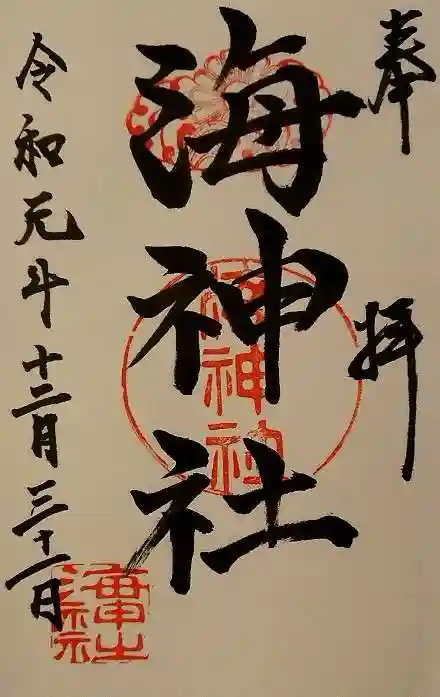 奉拝
海神社
令和元年十二月三十一日
海神社
海神社